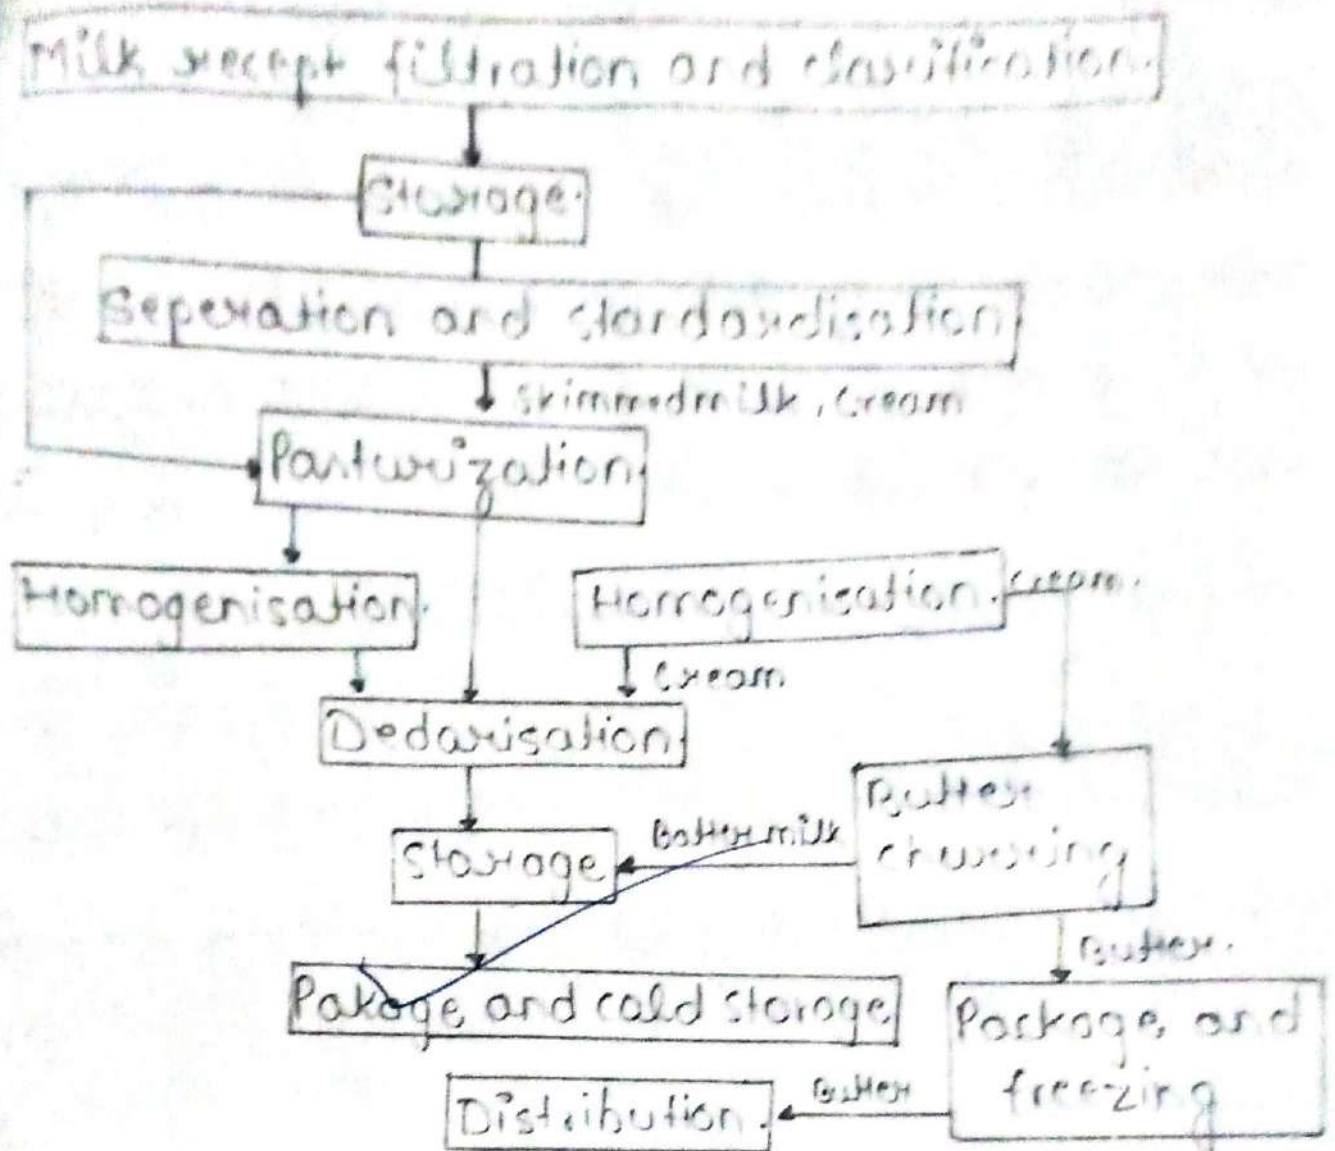 Milk recept filtration and clarification.
Storage.
Seperation and standardisation
Skimmedmilk, Cream
Pasturization.
Homogenisation.
Homogenisation.
Cream.
Cream
Dedarisation
Butter
churring
Storage
Buttermilk
Butter.
Pakage and cold storage
Package and
freezing
Distribution.
Butter